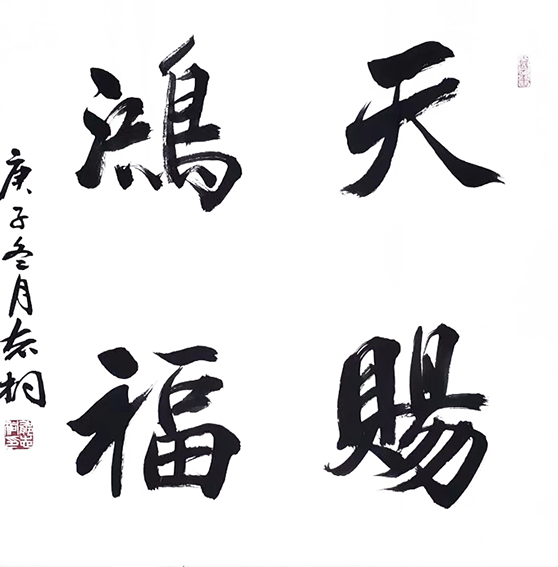 天賜
鴻福
庚子冬月志炯